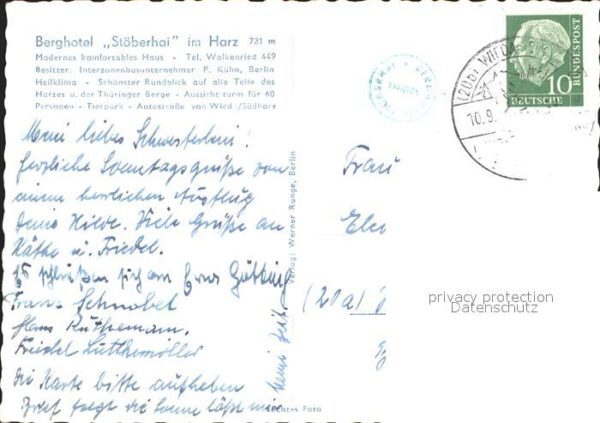 Berghotel „Stöberhai" im Harz 731 m
Modernes komfortables Haus - Tel. Walkenried 449
Besitzer. Interzonenbusunternehmer P. Kühn, Berlin
Heilklima - Schönster Rundblick auf alle Teile des
Harzes u. der Thüringer Berge - Aussichtsturm für 60
Personen - Tierpark - Autostraße von Wied./Südharz
Mein liebes Schwesterlein!
Herzliche Sonntagsgrüße von
einem herrlichen Ausflug
Deine Hilde. Viele Grüße an
Käthe u. Friedel.
Es schließen sich an
Franz Schnobel
Hans
Friedel Lüttkemöller
Die Karte bitte aufheben
Brief folgt die Sonne läßt mir
Verlag: Werner Runge, Berlin
Echtes Foto
Frau
(20a)
privacy protection
Datenschutz
(20b) WIEDA
10.9.
10
DEUTSCHE
BUNDESPOST